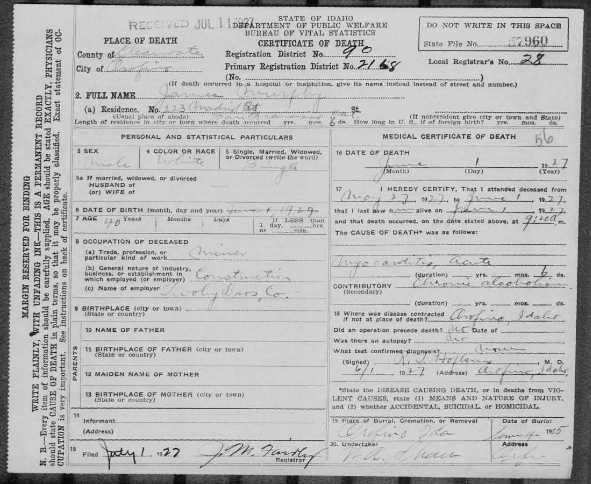 RECEIVED JUL 11 1927
STATE OF IDAHO
DEPARTMENT OF PUBLIC WELFARE
BUREAU OF VITAL STATISTICS
CERTIFICATE OF DEATH
DO NOT WRITE IN THIS SPACE
State File No. 960
Local Registrar's No. 28
PLACE OF DEATH
County of
City of Orofino
Registration District No. 90
Primary Registration District No. 2168
(No.
(If death occurred in a hospital or institution, give its name instead of street and number.)
2. FULL NAME James Murphy
(a) Residence. No. 223 St.
(Usual place of abode)
(If nonresident give city or town and State)
Length of residence in city or town where death occurred yrs. mos. 6 ds. How long in U. S., if of foreign birth? yrs. mos. ds.
PERSONAL AND STATISTICAL PARTICULARS
3 SEX
Male
4 COLOR OR RACE
White
5 Single, Married, Widowed, or Divorced (write the word)
Single
5a If married, widowed, or divorced
HUSBAND of
(or) WIFE of
6 DATE OF BIRTH (month, day and year)
7 AGE 40 Years Months Days
If LESS than
1 day, hrs
or min.
8 OCCUPATION OF DECEASED
(a) Trade, profession, or
particular kind of work miner
(b) General nature of industry,
business, or establishment in
which employed (or employer) Construction
(c) Name of employer Bros. Co.
9 BIRTHPLACE (city or town)
(State or country)
PARENTS
10 NAME OF FATHER
11 BIRTHPLACE OF FATHER (city or town)
(State or country)
12 MAIDEN NAME OF MOTHER
13 BIRTHPLACE OF MOTHER (city or town)
(State or country)
14
Informant
(Address)
15
Filed July 1 1927 J. M. Registrar
MEDICAL CERTIFICATE OF DEATH
56
16 DATE OF DEATH
June 1 1927
(Month) (Day) (Year)
17 I HEREBY CERTIFY, That I attended deceased from
May 27, 1927, to June 1, 1927,
that I last saw him alive on June 1, 1927
and that death occurred, on the date stated above, at m.
The CAUSE OF DEATH* was as follows:
Myocarditis, Acute
(duration) yrs. mos. 6 ds.
CONTRIBUTORY Chronic alcoholism
(Secondary)
(duration) yrs. mos. ds.
18 Where was disease contracted
if not at place of death? Orofino, Idaho
Did an operation precede death? no Date of
Was there an autopsy? no
What test confirmed diagnosis?
(Signed) Hopkins M. D.
6/1 1927 (Address) Orofino, Idaho
*State the DISEASE CAUSING DEATH, or in deaths from VIOLENT CAUSES, state (1) MEANS AND NATURE OF INJURY, and (2) whether ACCIDENTAL, SUICIDAL or HOMICIDAL.
19 Place of Burial, Cremation, or Removal Date of Burial
Orofino Ida
20 Undertaker Address
MARGIN RESERVED FOR BINDING
WRITE PLAINLY, WITH UNFADING INK—THIS IS A PERMANENT RECORD
N. B.—Every item of information should be carefully supplied. AGE should be stated EXACTLY. PHYSICIANS
should state CAUSE OF DEATH in plain terms, so that it may be properly classified. Exact statement of OCCUPATION is very important. See instructions on back of certificate.